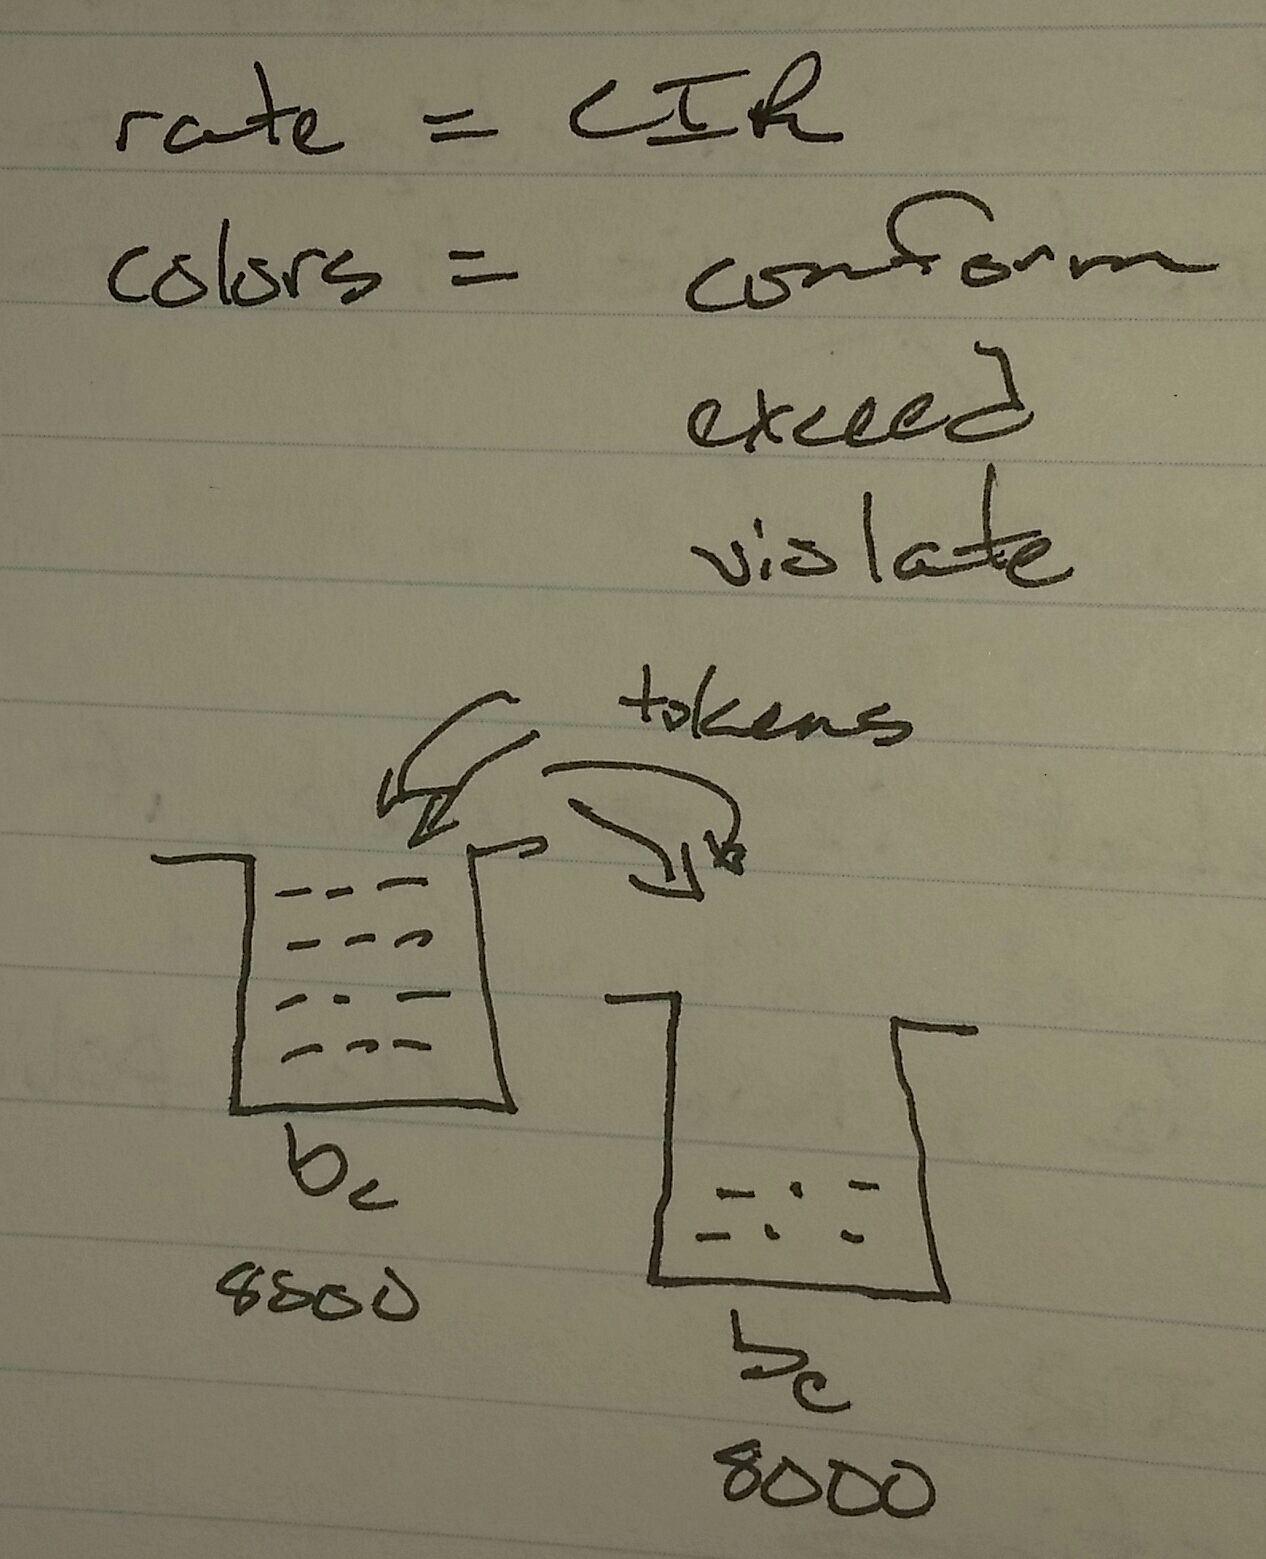 rate = CIR
colors = conform
exceed
violate
tokens
bc
8000
be
8000